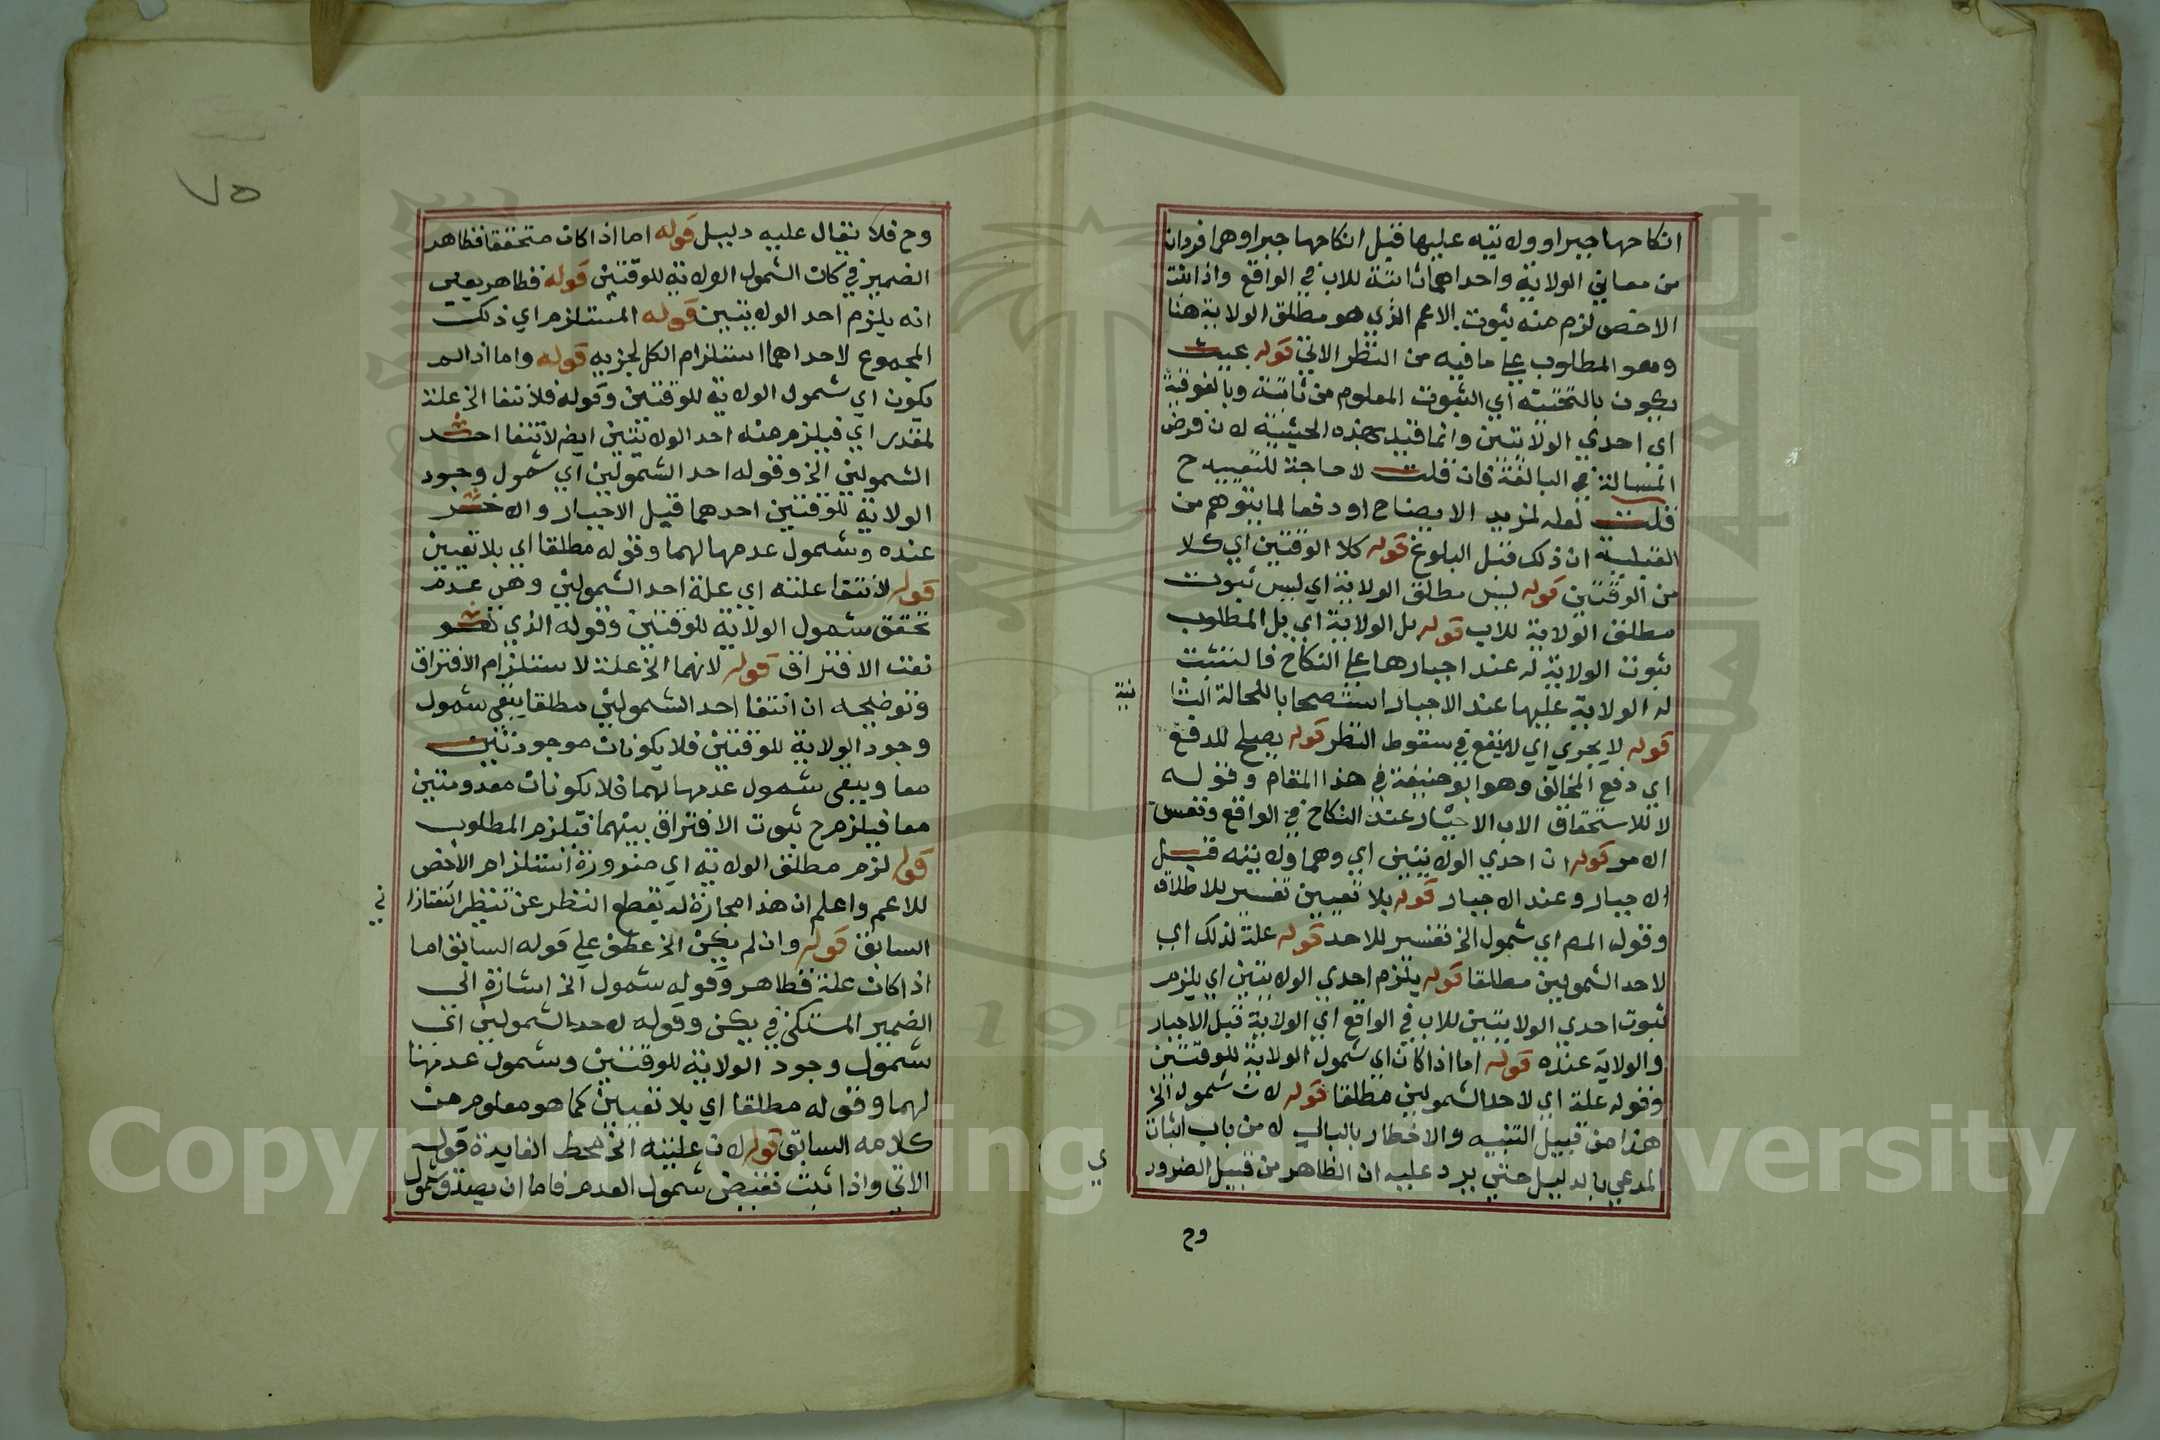 انكاحها جبرا وولايته عليها قبل انكاحها جبرا وهما فردان
من معاني الولاية واحداهما ثابتة للاب في الواقع واذا ثبت
الاخص لزم منه ثبوت الاعم الذي هو مطلق الولاية هنا
وهو المطلوب علي ما فيه من النظر الاتي قوله بحيث
يكون بالتحتية اي الثبوت المعلوم من ثابتة وبالفوقية
اي احدي الولايتين وانما قيد بهذه الحيثية لان فرض
المسالة في البالغة فان قلت لا حاجة للتقييد ح
قلت لعله لمزيد الايضاح او دفعا لما يتوهم من
القبلية ان ذلك قبل البلوغ قوله كلا الوقتين اي كلا
من الوقتين قوله ليس مطلق الولاية اي ليس ثبوت
مطلق الولاية للاب قوله بل الولاية اي بل المطلوب
ثبوت الولاية له عند اجبارها علي النكاح فالنثبت
له الولاية عليها عند الاجبار استصحابا للحالة الثا
نية
قوله لا يجري اي لا ينفع في سقوط النظر قوله يصلح لدفع
اي دفع المخالف وهو ابو حنيفة في هذا المقام وقوله
لا لاستحقاق الاب الاجبار عند النكاح في الواقع ونفس
الامر قوله ان احدي الولايتين اي وهما ولايته قبل
الاجبار وعند الاجبار قوله بلا تعيين تفسير للاطلاق
وقول المص اي شمول الخ تفسير للاحد قوله علة لذلك اي
لاحد الشمولين مطلقا قوله يلزم احدي الولايتين اي يلزم
ثبوت احدي الولايتين للاب في الواقع اي الولاية قبل الاجبار
والولاية عنده قوله اما اذا كان اي شمول الولاية للوقتين
وقوله علة اي لاحد الشمولين مطلقا قوله لان شمول الخ
هذا من قبيل التنبيه والاخطار بالبال لا من باب اثبات
المدعي بالدليل حتي يرد عليه ان الظاهر من قبيل الضرور
ي
وح
٧٥
وح فلا يقال عليه دليل قوله اما اذا كان متحققا فظاهر
الضمير في كان لشمول الولاية للوقتين قوله فظاهر يعني
انه يلزم احد الولايتين قوله المستلزم اي ذلك
المجموع لاحداهما استلزام الكل لجزيه قوله واما اذا لم
يكون اي شمول الولاية للوقتين وقوله فلانتفا الخ علة
لمقدر اي فيلزم منه احد الولايتين ايض لانتفا احد
الشمولين الخ وقوله احد الشمولين اي شمول وجود
الولاية للوقتين احدهما قبل الاجبار والاخر
عنده وشمول عدمها لهما وقوله مطلقا اي بلا تعيين
قوله لانتفا علته اي علة احد الشمولين وهي عدم
تحقق شمول الولاية للوقتين وقوله الذي هو
نعت الافتراق قوله لانهما الخ علة لاستلزام الافتراق
وتوضيحه ان انتفا احد الشمولين مطلقا ينفي شمول
وجود الولاية للوقتين فلا يكونان موجودتين
معا وينفي شمول عدمها لهما فلا يكونان معدومتين
معا فيلزم ح ثبوت الافتراق بينهما فيلزم المطلوب
قوله لزم مطلق الولاية اي ضرورة استلزام الاخص
للاعم واعلم ان هذا مجازة لم يقطع النظر عن تنظير التفتازا
ني
السابق قوله وان لم يكن الخ عطف علي قوله السابق اما
اذا كان علة فظاهر وقوله شمول الخ اشارة الي
الضمير المستكن في يكن وقوله لاحد الشمولين اي
شمول وجود الولاية للوقتين وشمول عدمها
لهما وقوله مطلقا اي بلا تعيين كما هو معلوم من
كلامه السابق قوله لان عليته الخ محط الفايدة قوله
الاتي واذا ثبت نقيض شمول العدم فاما ان يصدق شمول